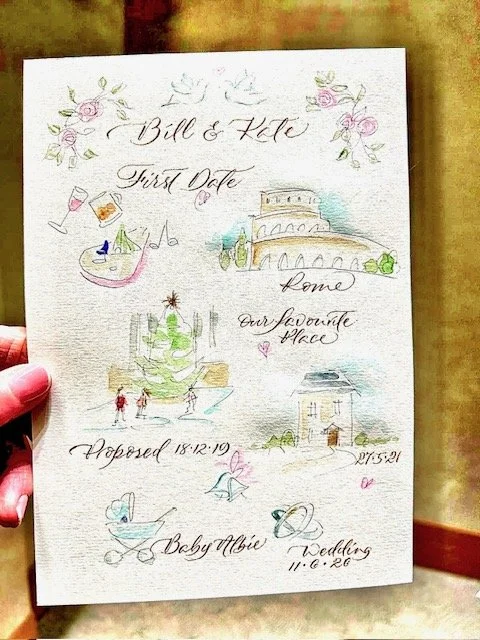 Bill & Kate
First Date
Rome
Our favourite
Place
Proposed 18.12.19
27.5.21
Baby Albie
Wedding
11.6.26